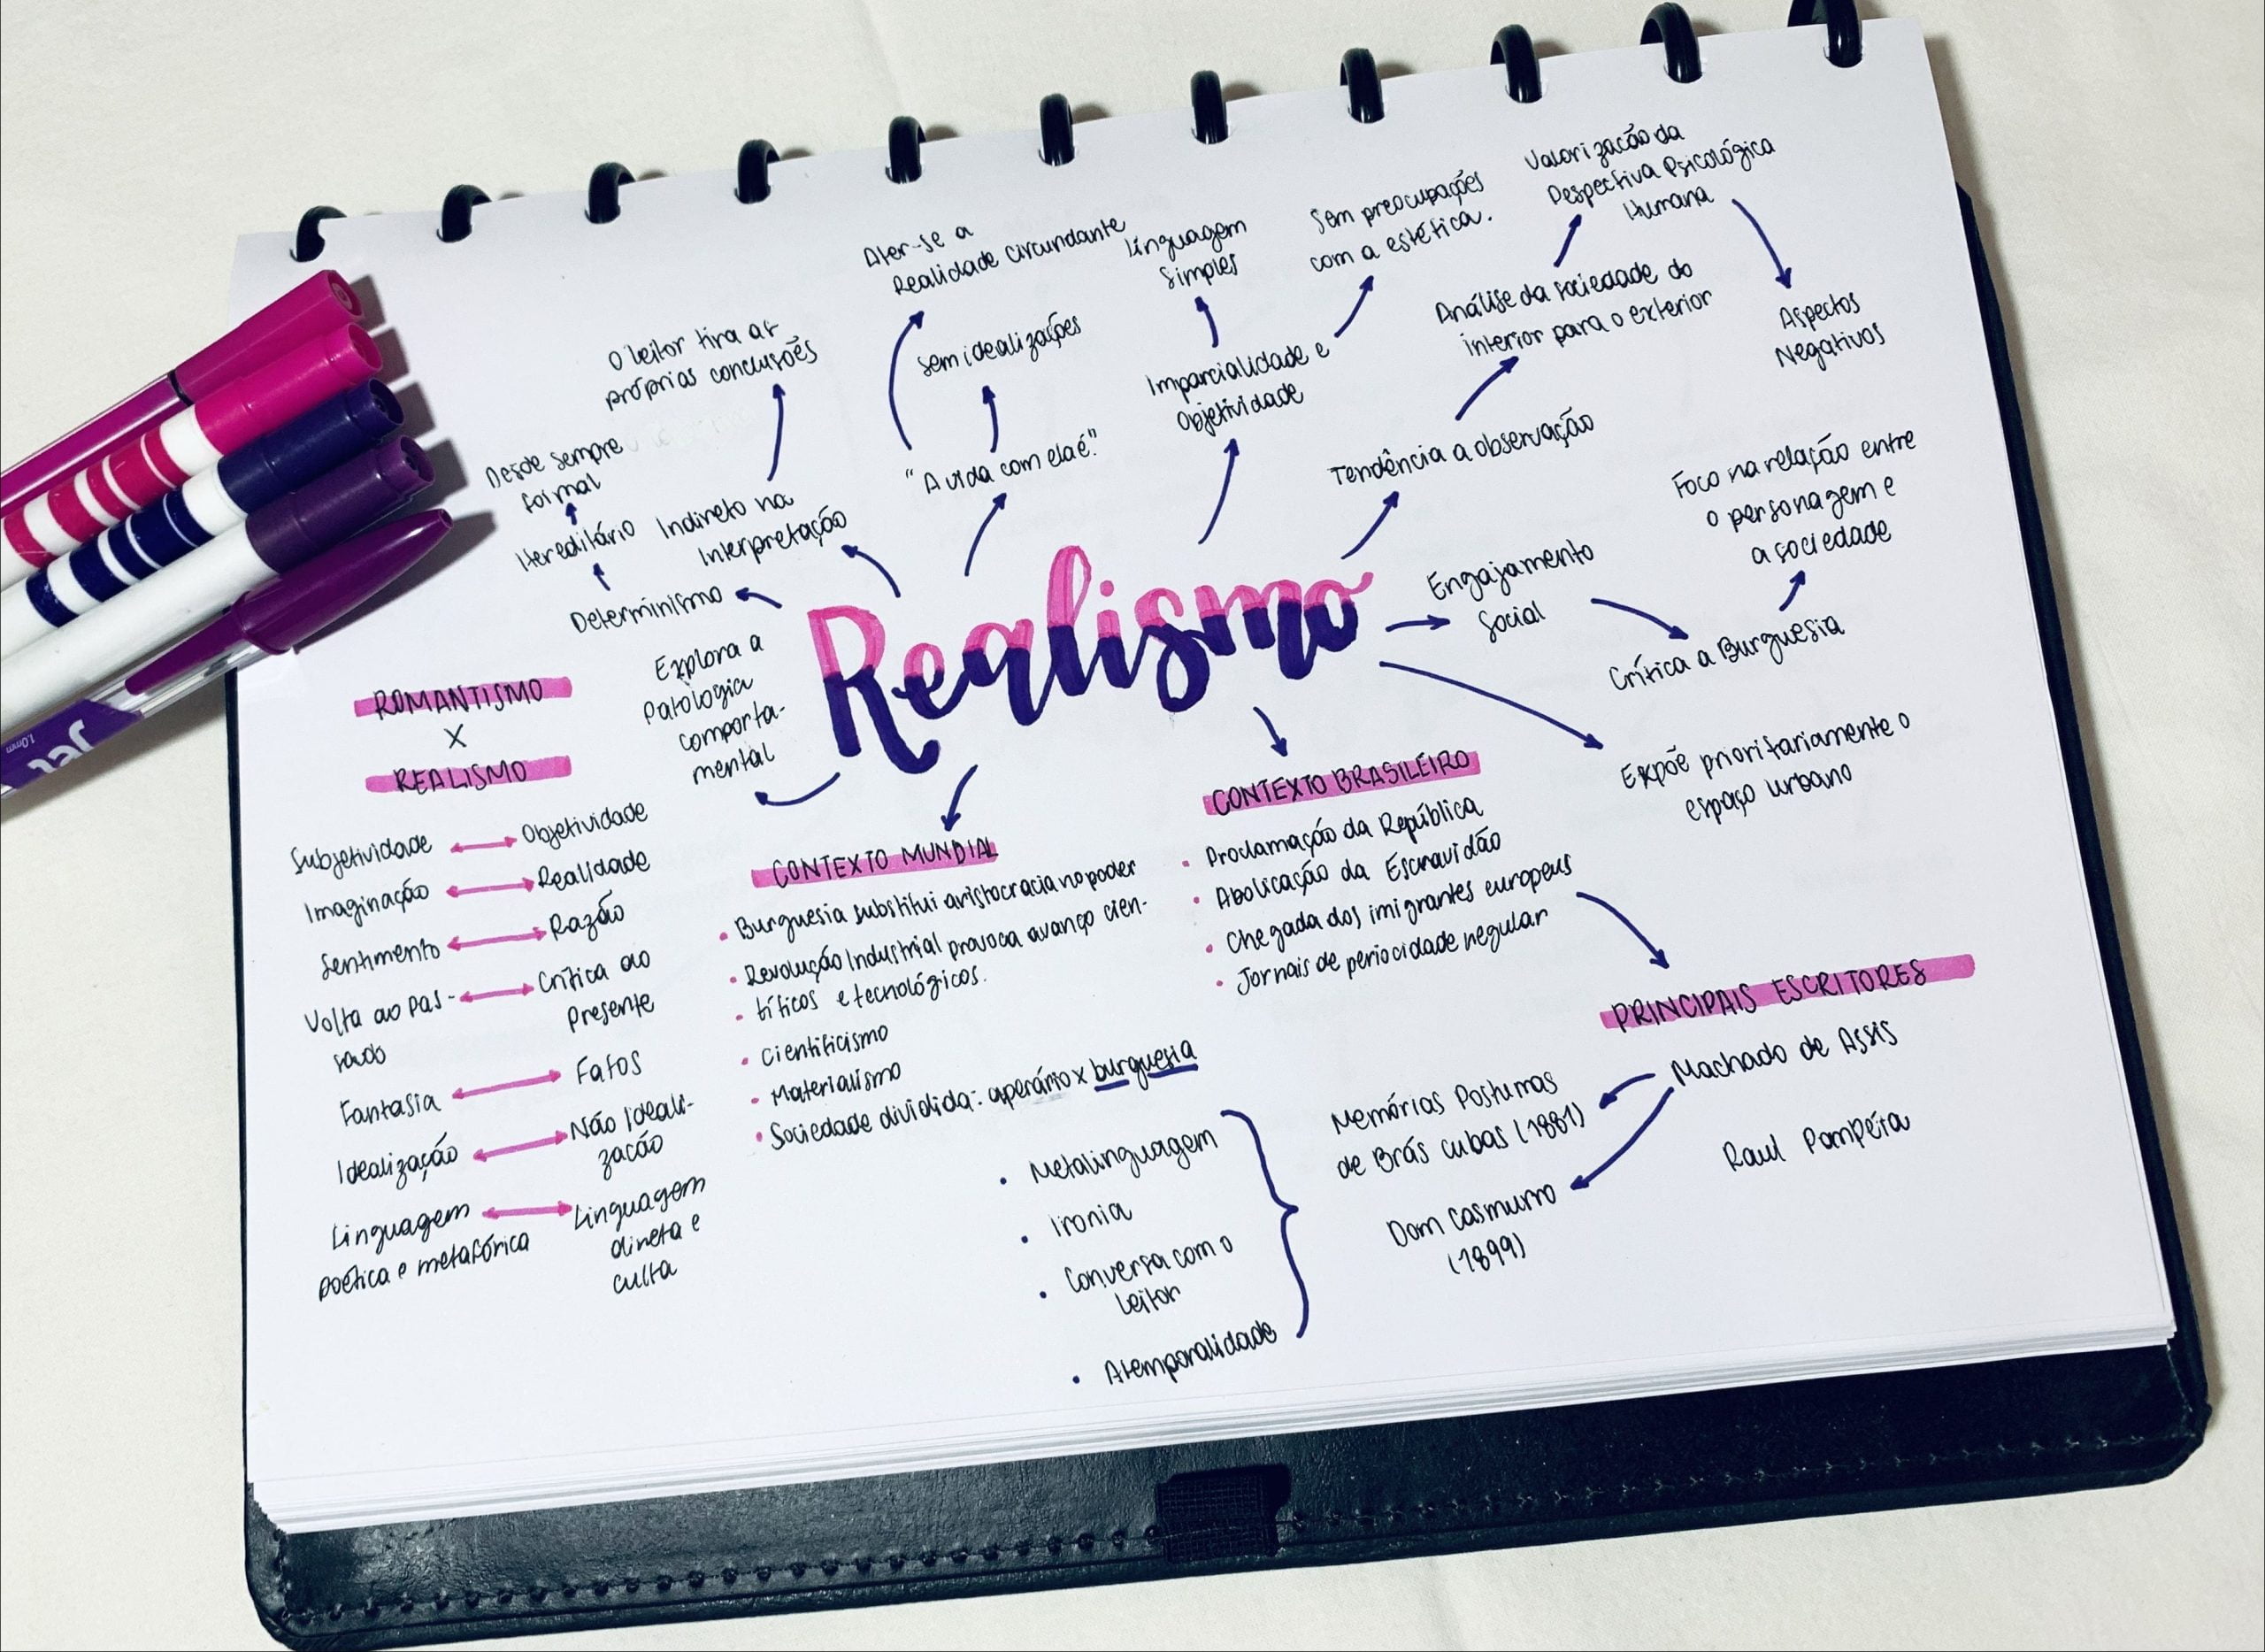 Realismo
O leitor tira as
próprias conclusões
Indireto na
Interpretação
Desde sempre
formal
Hereditário
Determinismo
Explora a
Patologia
comporta-
mental
Ater-se a
Realidade circundante
Sem idealizações
"A vida com ela é."
Linguagem
Simples
Sem preocupações
com a estética.
Imparcialidade e
Objetividade
Valorizacão da
Perspectiva Psicológica
Humana
Aspectos
Negativos
Análise da sociedade do
interior para o exterior
Tendência a observação
Engajamento
Social
Crítica a Burguesia
Foco na relação entre
o personagem e
a sociedade
Expõe prioritariamente o
espaço urbano
ROMANTISMO
X
REALISMO
Subjetividade Objetividade
Imaginação Realidade
Sentimento Razão
Volta ao pas- Crítica ao
sado Presente
Fantasia Fatos
Idealização Não Ideali-
zacão
Linguagem Linguagem
poética e metafórica direta e
culta
CONTEXTO MUNDIAL
• Burguesia substitui aristocracia no poder
• Revolução Industrial provoca avanço cien-
• tíficos e tecnológicos.
• Cientificismo
• Materialismo
• Sociedade dividida: operário x burguesia
CONTEXTO BRASILEIRO
• Proclamação da República
• Abolicação da Escravidão
• Chegada dos imigrantes europeus
• Jornais de periocidade regular
PRINCIPAIS ESCRITORES
Machado de Assis
Memórias Postumas
de Brás Cubas (1881)
Dom Casmurro
(1899)
Raul Pompéia
• Metalinguagem
• Ironia
• Conversa com o
leitor
• Atemporalidade
Jet
1.0mm